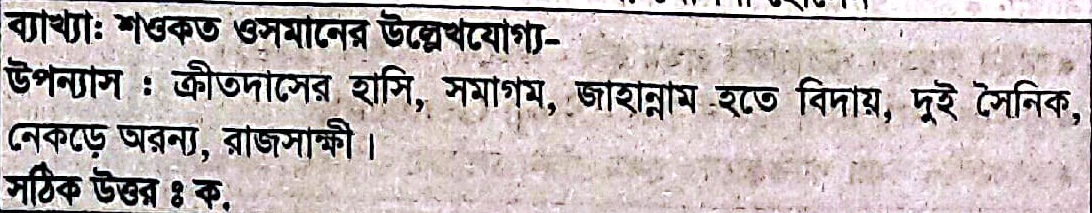 ব্যাখ্যাঃ শওকত ওসমানের উল্লেখযোগ্য-
উপন্যাস : ক্রীতদাসের হাসি, সমাগম, জাহান্নাম হতে বিদায়, দুই সৈনিক,
নেকড়ে অরন্য, রাজসাক্ষী।
সঠিক উত্তর ঃ ক.